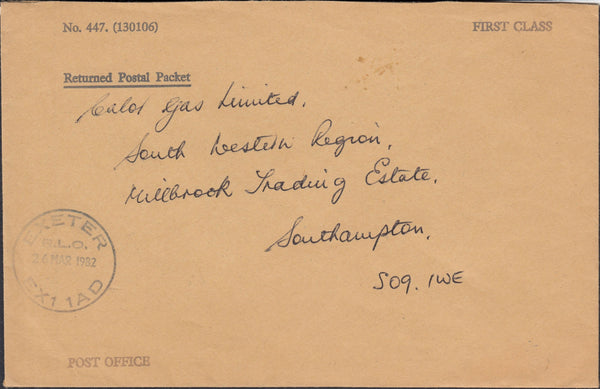 No. 447. (130106)
FIRST CLASS
Returned Postal Packet
Calor Gas Limited,
South Western Region,
Millbrook Trading Estate,
Southampton,
SO9. 1WE
EXETER
R.L.O.
26 MAR 1982
EX1 1AD
POST OFFICE